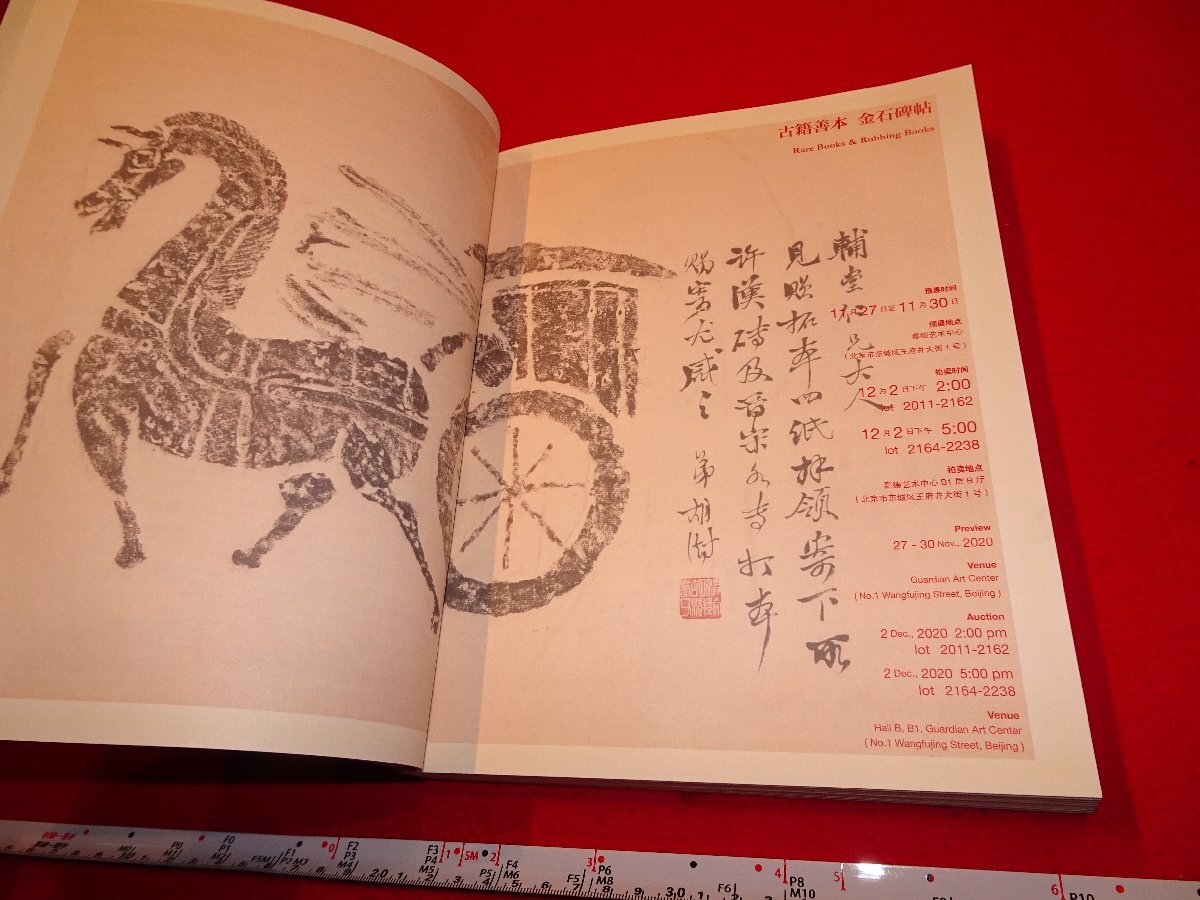 古籍善本 金石碑帖
Rare Books & Rubbing Books
輔堂仁兄大人
見贈拓本四紙拜領案下承
許漢磚及晋宋各専打本
賜寄尤感之 弟胡澍
预展时间
11月27日至11月30日
预展地点
嘉德艺术中心
(北京市东城区王府井大街1号)
拍卖时间
12月2日下午 2:00
lot 2011-2162
12月2日下午 5:00
lot 2164-2238
拍卖地点
嘉德艺术中心B1层B厅
(北京市东城区王府井大街1号)
Preview
27 - 30 Nov., 2020
Venue
Guardian Art Center
(No.1 Wangfujing Street, Beijing)
Auction
2 Dec., 2020 2:00 pm
lot 2011-2162
2 Dec., 2020 5:00 pm
lot 2164-2238
Venue
Hall B, B1, Guardian Art Center
(No.1 Wangfujing Street, Beijing)